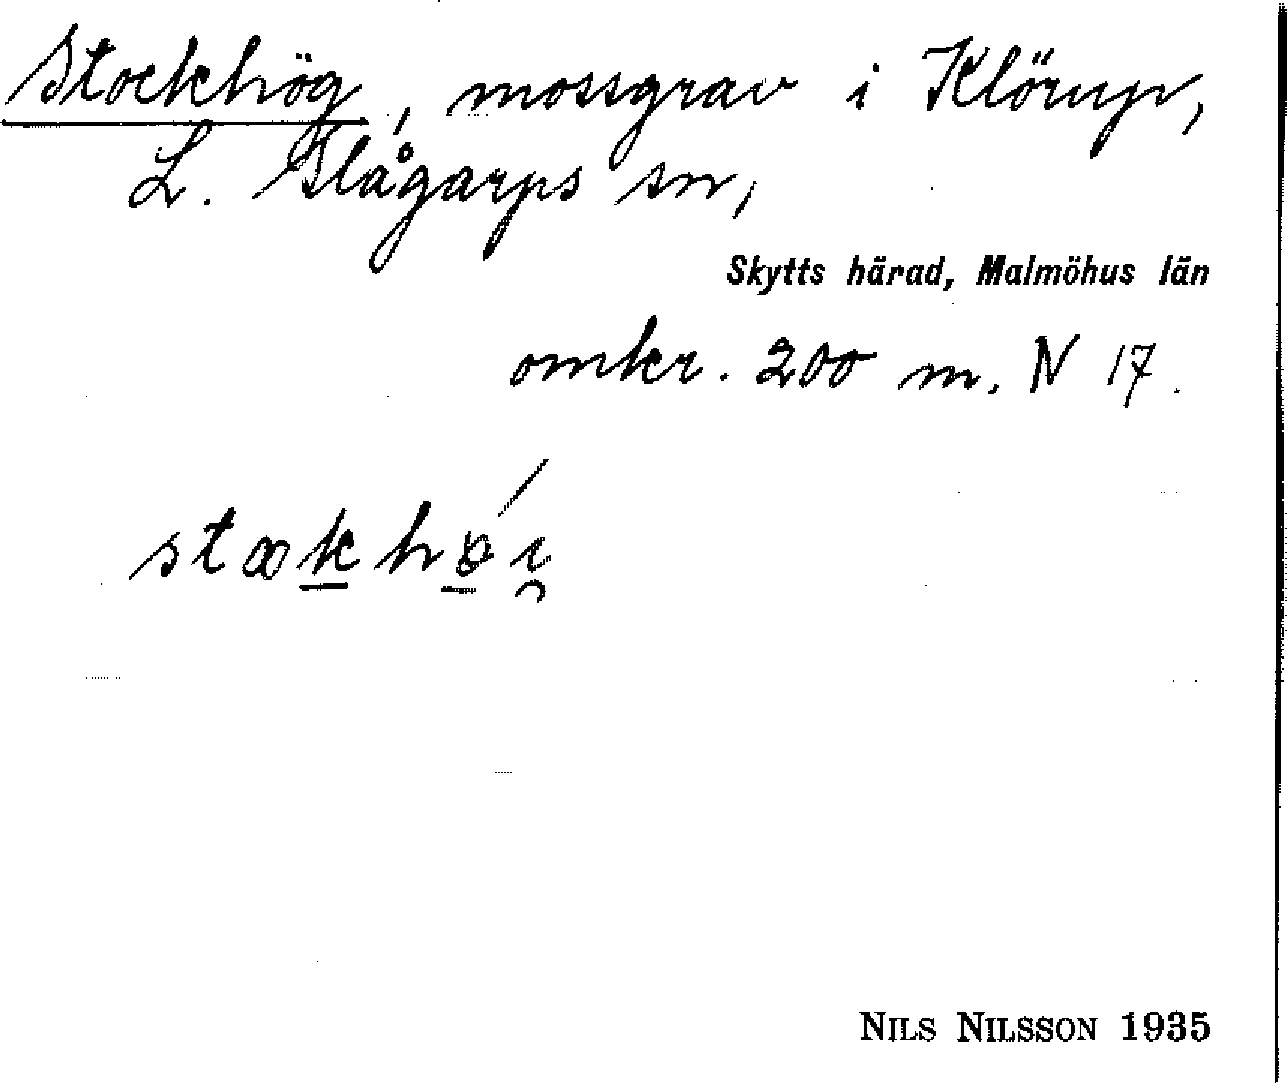 Stockhög, mossgrav i Klörup,
L. Slågarps sn,
Skytts härad, Malmöhus län
omkr. 200 m. N 17.
NILS NILSSON 1935